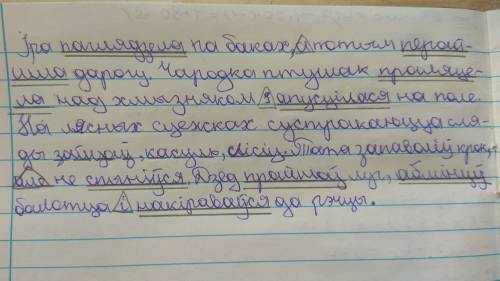 Іра паглядзела па баках, а потым перай-
шла дарогу. Чародка птушак праляце-
ла над хмызняком і апусцілася на поле
На лясных сцежках сустракаюцца сля-
ды зайцаў, касуль, лісіц. Тата запаволіў крок,
але не спыніўся. Дзед прайшоў луг, абмінуў
балотца і накіраваўся да рэчцы.